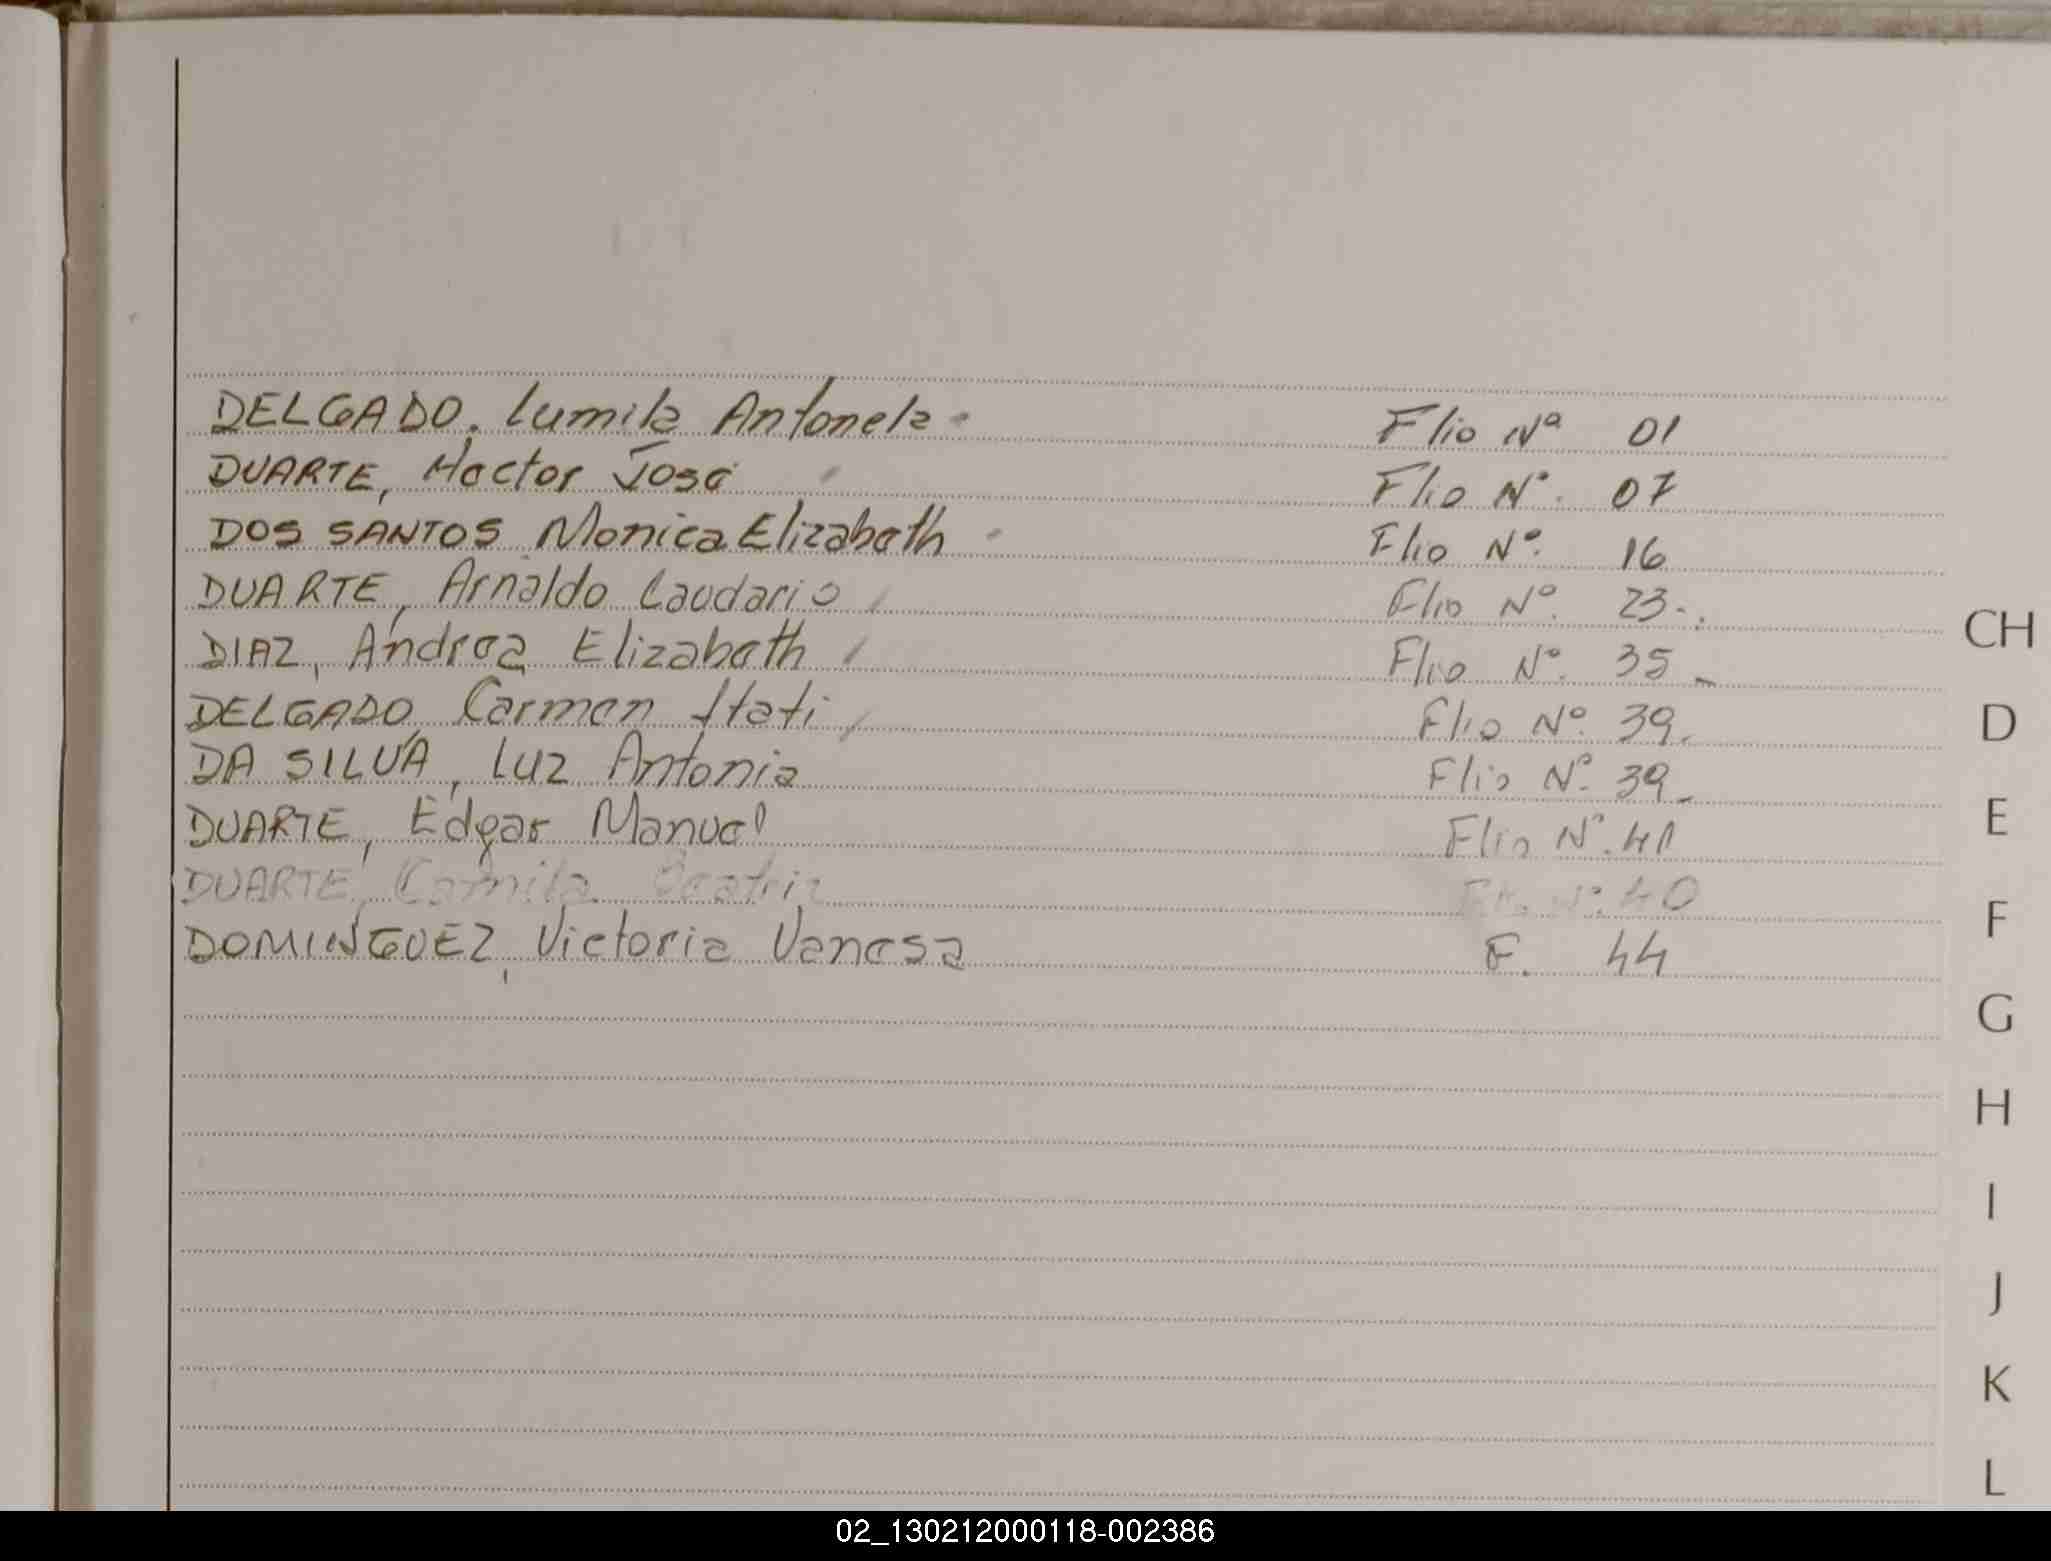 DELGADO, Lumila Antonela - Flio Nº 01
DUARTE, Hector José Flio Nº. 07
DOS SANTOS Monica Elizabeth - Flio Nº. 16
DUARTE, Arnaldo Laudario Flio Nº. 23-.
CH
DIAZ, Andrea Elizabeth / Flio Nº. 35 -
DELGADO, Carmen Itati / Flio Nº. 39.
D
DA SILVA, Luz Antonia Flio Nº. 39 -
E
DUARTE, Edgar Manuel Flio Nº. 41
DUARTE, Camila Beatriz Flio Nº. 40
F
DOMINGUEZ, Victoria Vanesa F. 44
G
H
I
J
K
L
02_130212000118-002386